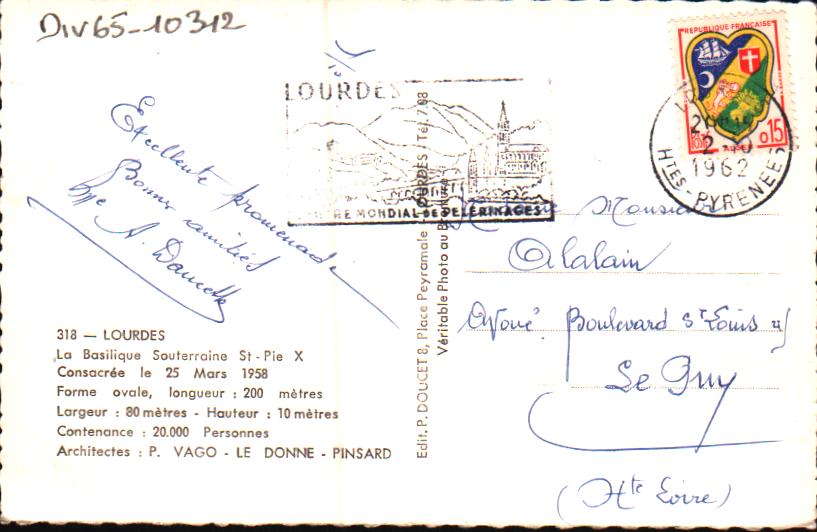 Div65-10312
Excellente promenade
Bonnes amitiés
A. Doucette
318 — LOURDES
La Basilique Souterraine St-Pie X
Consacrée le 25 Mars 1958
Forme ovale, longueur : 200 mètres
Largeur : 80 mètres - Hauteur : 10 mètres
Contenance : 20.000 Personnes
Architectes : P. VAGO - LE DONNE - PINSARD
Edit. P. DOUCET 8, Place Peyramale LOURDES / Tél. 7.08
Véritable Photo au
LOURDES
CENTRE MONDIAL DE PÈLERINAGES
REPUBLIQUE FRANÇAISE
POSTES
ALGER
0,15
1962
HTES-PYRENEES
Monsieur
Alalain
Avoué Boulevard St Louis
Le Puy
(Hte Loire)